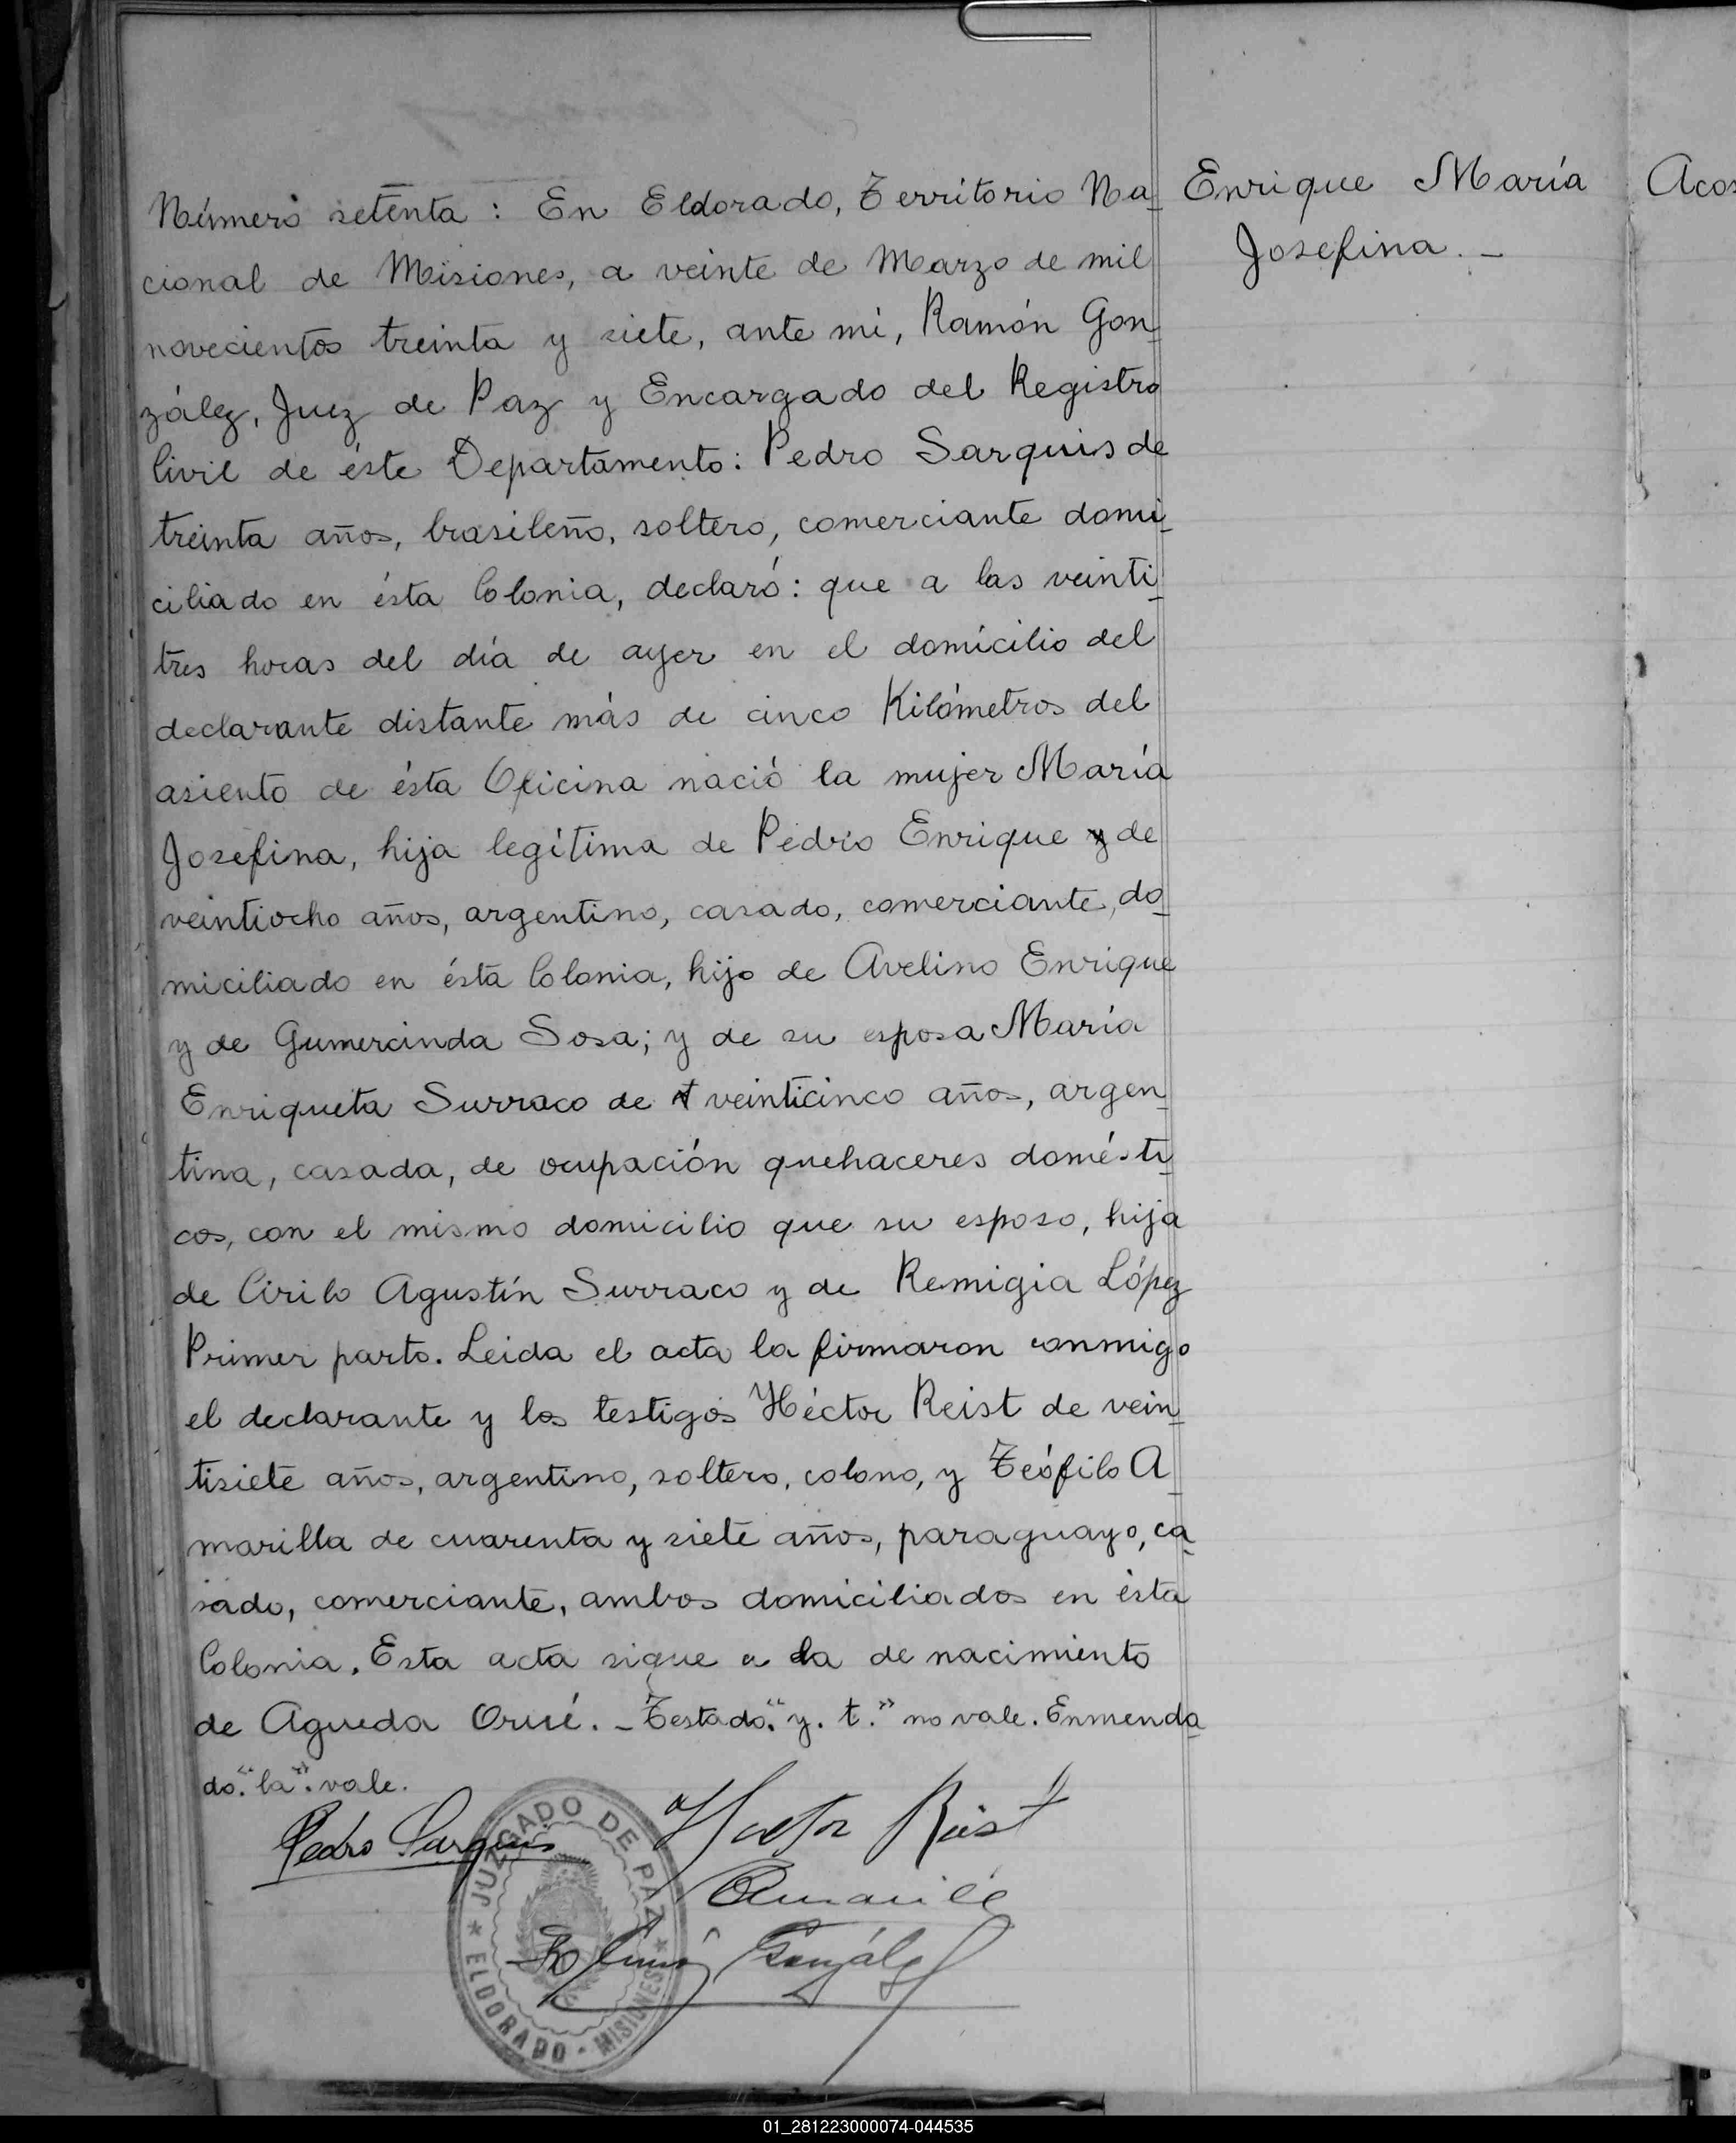 Número setenta : En Eldorado, Territorio Na_
cional de Misiones, a veinte de Marzo de mil
novecientos treinta y siete, ante mi, Ramón Gon_
zález, Juez de Paz y Encargado del Registro
Civil de éste Departamento: Pedro Sarquis de
treinta años, brasileño, soltero, comerciante domi_
ciliado en ésta Colonia, declaró: que a las veinti_
tres horas del día de ayer en el domicilio del
declarante distante más de cinco Kilómetros del
asiento de ésta Oficina nació la mujer María
Josefina, hija legítima de Pedro Enrique y de
veintiocho años, argentino, casado, comerciante, do_
miciliado en ésta Colonia, hijo de Avelino Enrique
y de Gumercinda Sosa; y de su esposa María
Enriqueta Surraco de t veinticinco años, argen_
tina, casada, de ocupación quehaceres domésti_
cos, con el mismo domicilio que su esposo, hija
de Cirilo Agustín Surraco y de Remigia López
Primer parto. Leida el acta la firmaron conmigo
el declarante y los testigos Héctor Reist de vein_
tisiete años, argentino, soltero, colono, y Teófilo A_
marilla de cuarenta y siete años, paraguayo, ca_
sado, comerciante, ambos domiciliados en ésta
Colonia. Esta acta sigue a la de nacimiento
de Agueda Orué. _ Testado. "y. t." no vale. Enmenda_
do. "la". vale.
Enrique María
Josefina. _
Acos
Pedro Sarquis
Hector Reist
Amarilla
Ramón González
JUZGADO DE PAZ
★ ELDORADO - MISIONES ★
01_281223000074-044535